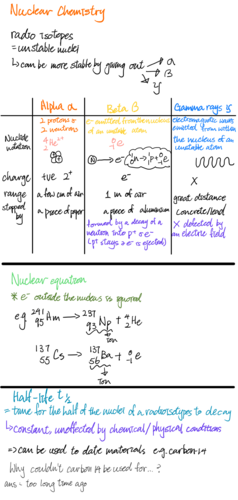 Nuclear Chemistry
radio isotopes
= unstable nuclei
↳ can be more stable by giving out → α
β
γ
Alpha α
Beta β
Gamma rays γ
Nuclide notation
2 protons +
2 neutrons
⁴₂He²⁺
e⁻ emitted from the nucleus
of an unstable atom
⁰₋₁e
n → e⁻ ¹₀n → ¹₁p + ⁰₋₁e
electromagnetic waves
emitted from within
the nucleus of an
unstable atom
charge
+ve 2⁺
e⁻
X
range
a few cm of air
1 m of air
great distance
stopped by
a piece of paper
a piece of aluminium
concrete/lead
formed by a decay of a
neutron into p⁺ & e⁻
(p⁺ stays & e⁻ is ejected)
X detected by
an electric field
Nuclear equation
* e⁻ outside the nucleus is ignored
eg ²⁴¹₉₅Am → ²³⁷₉₃Np + ⁴₂He
ion
¹³⁷₅₅Cs → ¹³⁷₅₆Ba + ⁰₋₁e
ion
Half-life t½
= time for the half of the nuclei of a radioisotopes to decay
↳ constant, unaffected by chemical/physical conditions
⇒ can be used to date materials e.g. carbon-14
Why couldn't carbon 14 be used for...?
ans = too long time ago